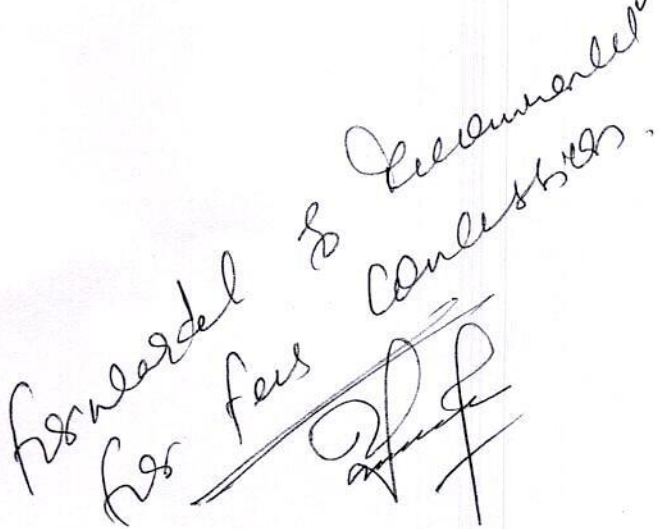 forwarded & Recommended
for fees concession.